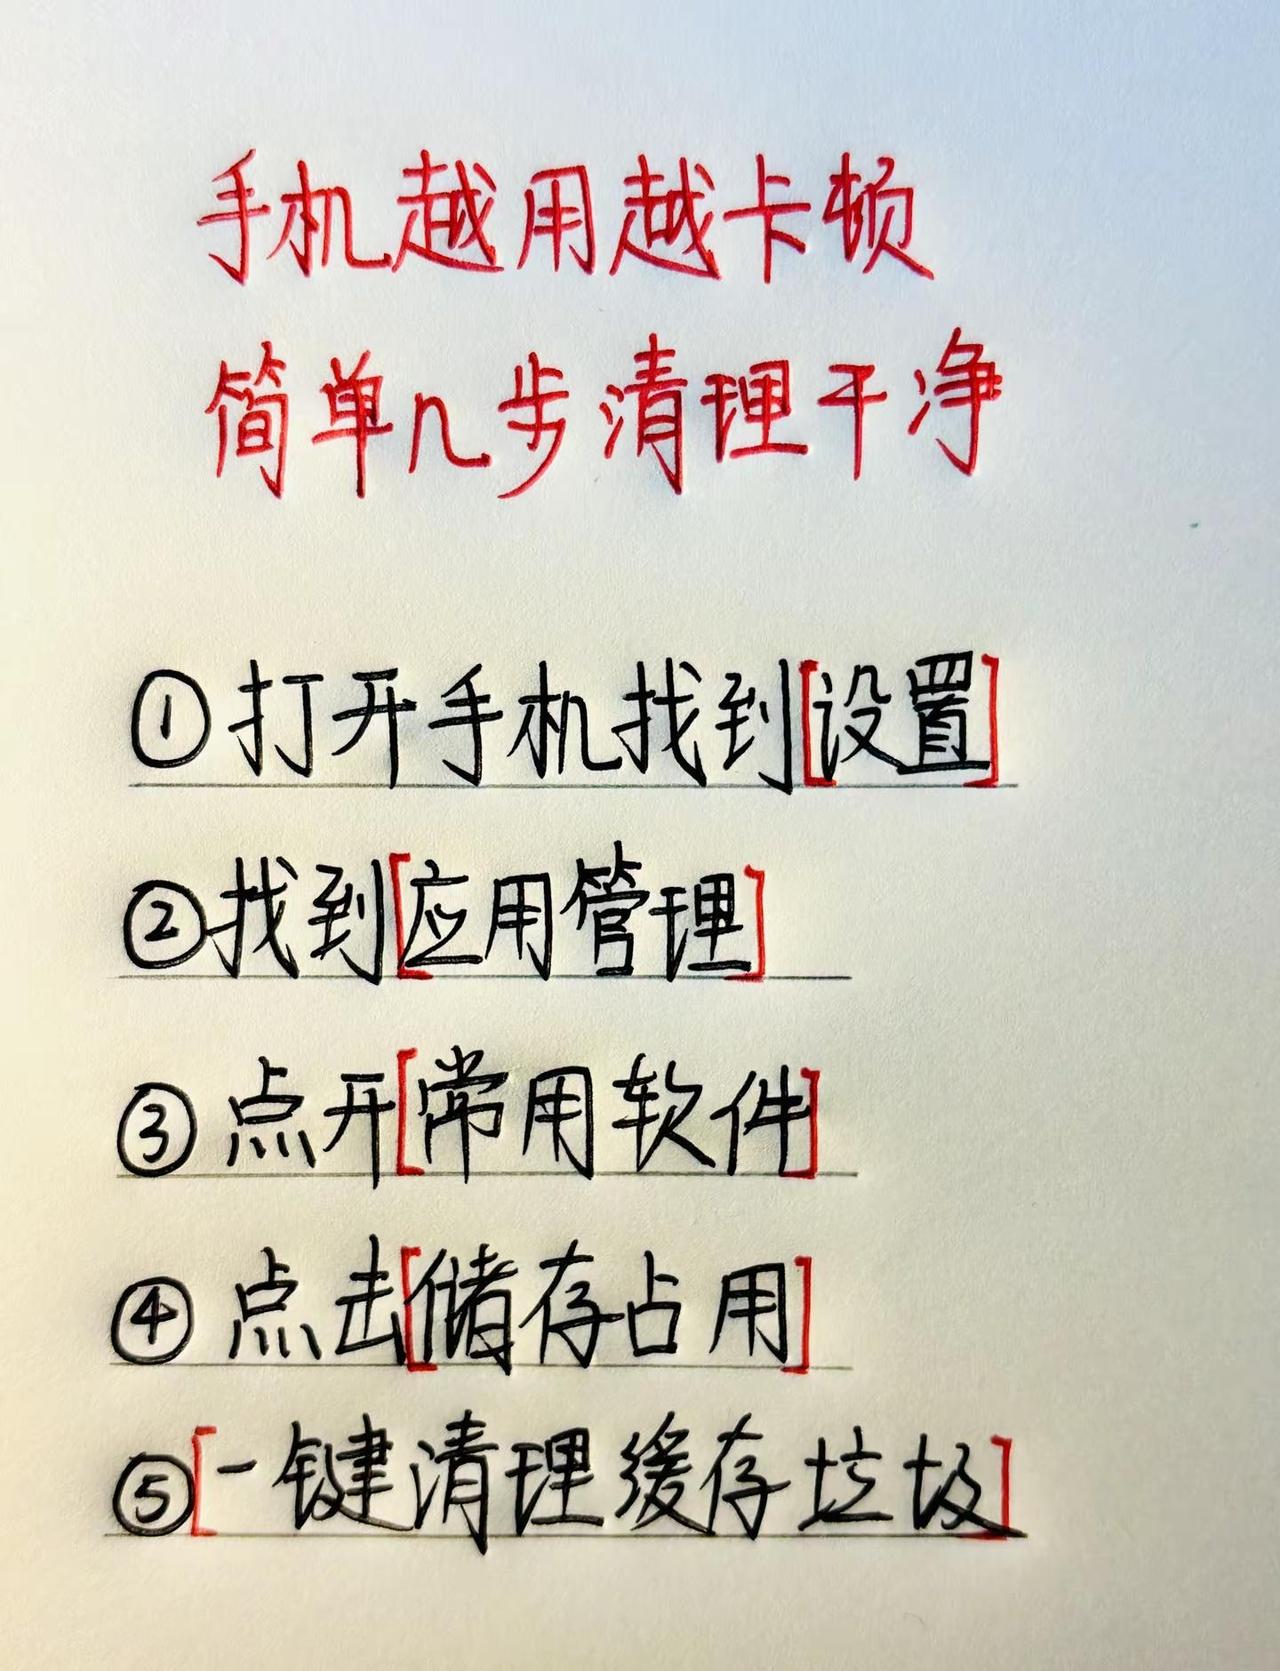 手机越用越卡顿
简单几步清理干净
①打开手机找到[设置]
②找到[应用管理]
③点开[常用软件]
④点击[储存占用]
⑤[一键清理缓存垃圾]